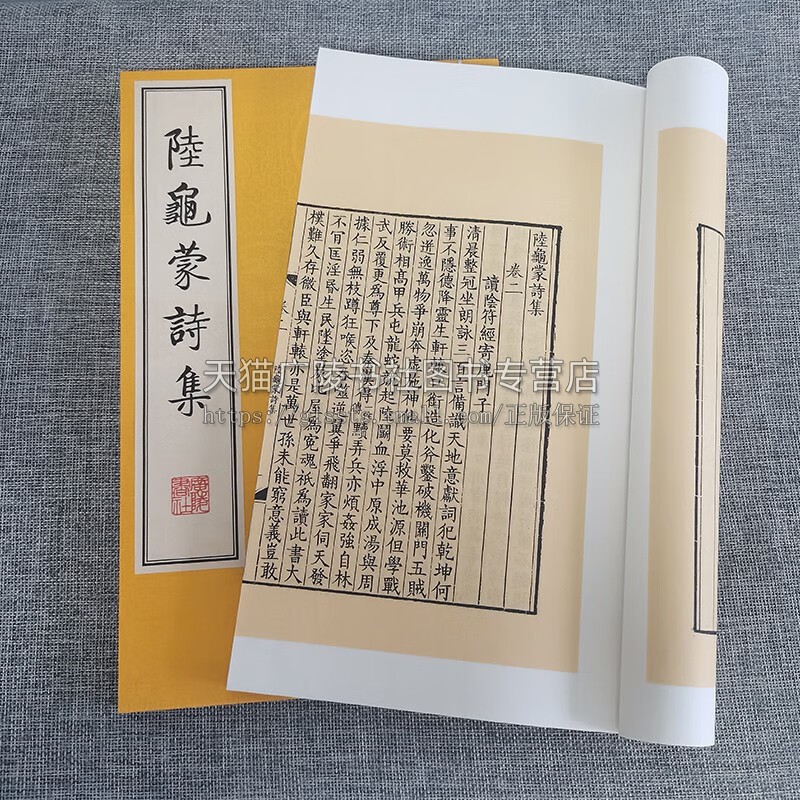 陸龜蒙詩集
廣陵書社
陸龜蒙詩集
卷二
讀陰符經寄鹿門子
清晨整冠坐朗詠三百言備識天地意獻詞犯乾坤何
事不隱德降靈生軒轅銜造化谷鑿破機關門五賊
忽迸逸萬物爭崩奔虛施神仙要莫救華池源但學戰
勝術相高甲兵屯龍蛇競起陸鬭血浮中原成湯與周
武反覆更爲尊下及秦漢得黷弄兵亦煩姦強自林
據仁弱無枝蹲狂喉恣吞噬逆翼爭飛翻家家伺天發
不肎匡淫昏生民墜塗炭比屋爲冤魂祇爲讀此書大
樸難久存微臣與軒轅亦是萬世孫未能窮意義豈敢
天猫广陵书社图书专营店
正版保证